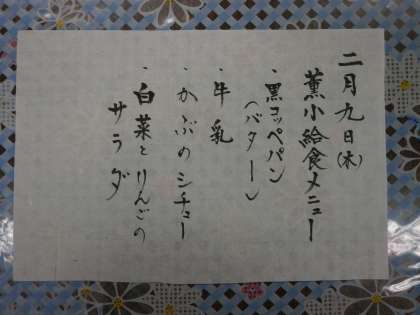 二月九日(木)
薫小給食メニュー
・黒コッペパン
(バター)
・牛乳
・かぶのシチュー
・白菜とりんごの
サラダ